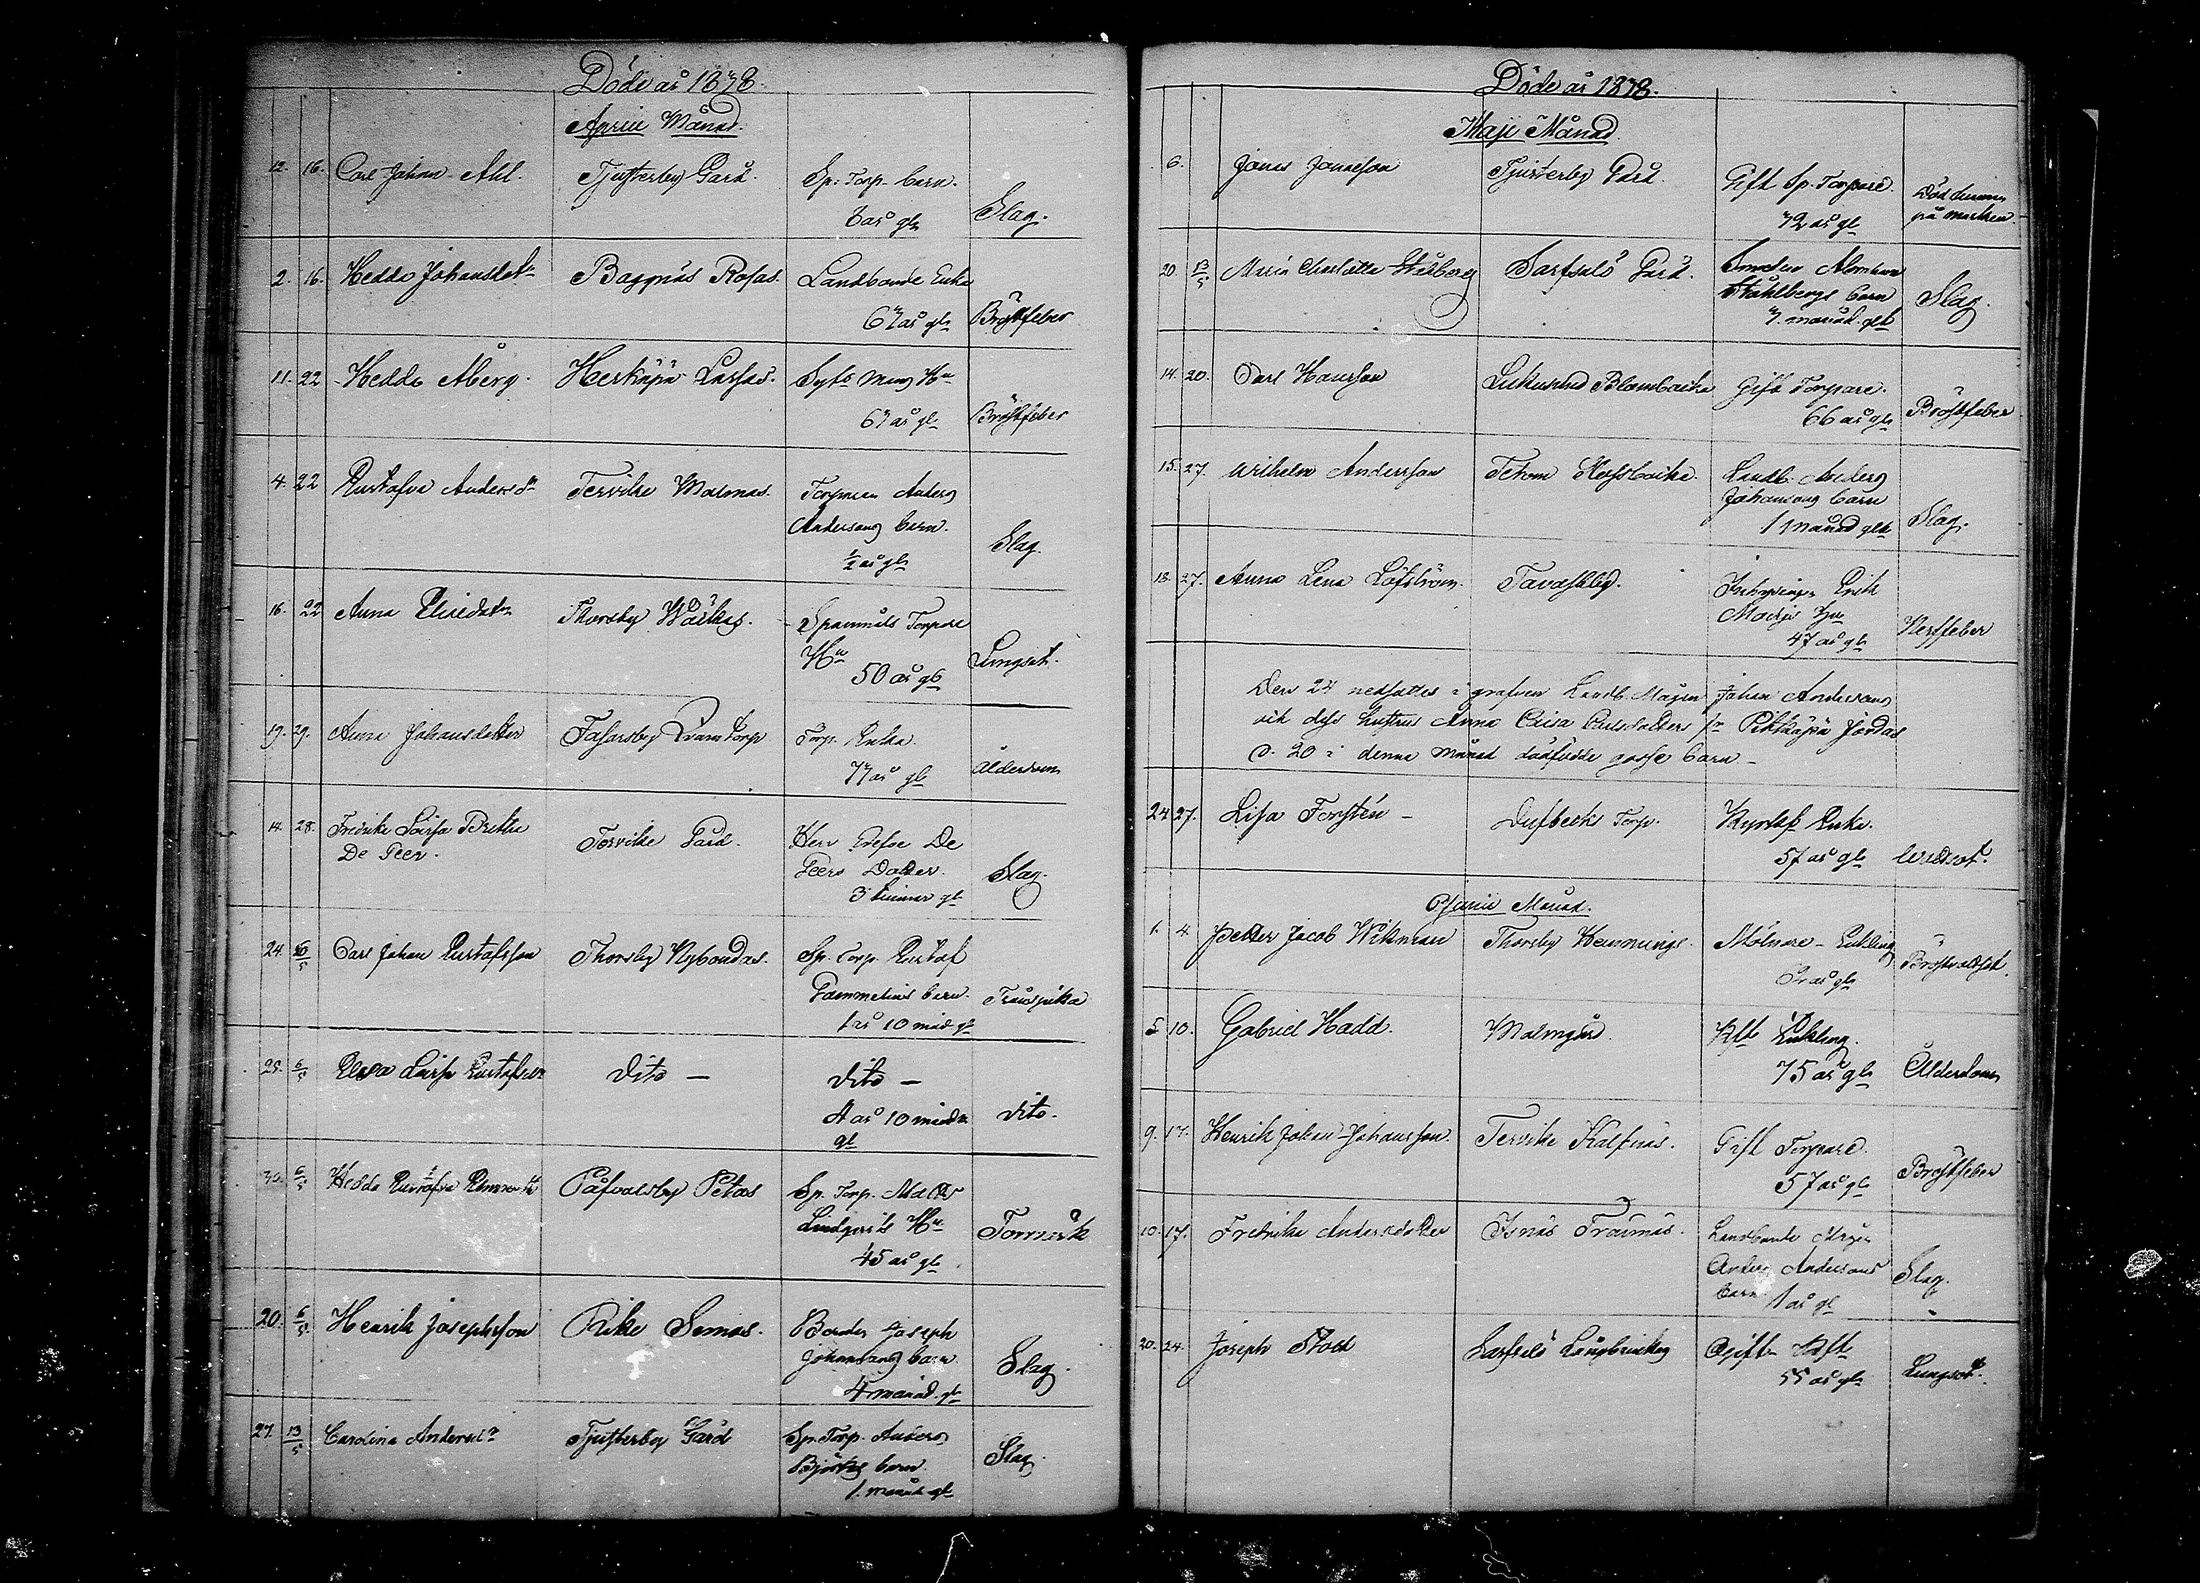 Döde år 1878.
April Månad.
12. 16. Carl Johan Ahl. Tjusterby Gård. Sp. Torp. barn.
år gl. Slag.
2. 16. Hedda Johansdotr Baggnäs Rosas. Landbonde Enka
67 år gl. Bröstfeber
11. 22 Hedda Åberg. Herkäpä Larsas. Hu
67 år gl. Bröstfeber
4. 22 Gustafva Andersdr Tervike Malmas. Torparen Anders
Anderssons barn.
½ år gl. Slag.
16. 22 Anna Thorsby Torpare
Hu
50 år gl. Lungsot.
19. 29. Anna Johansdotter Torp. Enka.
77 år gl. Ålderdom
14. 28. Fredrika Lovisa
De Geer. Tervike Gård. Herr Grefve De
Geers Dotter.
3 timmar gl. Slag.
24. 6/5 Carl Johan Gustafsson Thorsby Nybondas. Sp. Torp. Gustaf
Gammelins barn.
1 år 10 mån gl. Främsjuka
25. 6/5 Lovisa Gustafsdr Dito — Dito —
4 år 10 mån
gl. Dito.
30. 6/5 Hedda Gustafva Påfvalsby Petas Sp. Torp.
Lindqvists Hu
45 år gl. Torrverk
20. 6/5 Henrik Josephsson Rike Semas. Bonden Joseph
Johanssons barn
4 månad. gl. Slag.
27. 13/5 Carolina Andersdr Tjusterby Gård Sp. Torp. Anders
Björks barn.
1. månad gl. Slag.
Döde år 1878.
Maji Månad
6. Jonas Jonasson Tjusterby Gård. Gift Sp. Torpare.
72 år gl. Död funnen
på marken.
20. 13/5 Maria Charlotta Sarfsalö Gård.
Ståhlbergs barn
7. månad. glt Slag.
14. 20. Carl Hansson Blombacka Gift Torpare.
66 år gl. Bröstfeber
15. 27. Wilhelm Andersson Tetom Landb. Anders
Johanssons barn
1 månad glt Slag.
18. 27. Anna Lena Löfström. Tavastby. Inhysingen Erik
Hu
47 år gl. Nerffeber
Den 24 nedsattes i grafven Landb. Mågen Johan Anderssons
och dess hustrus Anna Caisa fr. Pitkäpä Jordas
d. 20 i denna månad dödfödde gosse barn —
24 27. Lisa Forstén — Torp. Enka.
57 år gl.
Junii Månad.
1. 4. Petter Jacob Wikman Thorsby Hemmings. Mölnare - Enkling
år gl.
5 10. Gabriel Hadd. Malmgård. Enkling.
75 år gl. Ålderdom
9. 17. Henrik Johan Johansson. Tervike Kalfnäs. Gift Torpare.
57 år gl. Bröstfeber
10. 17. Fredrika Andersdotter Isnäs Landbonde Mågen
Anders Anderssons
barn 1 år gl. Slag.
20. 24. Joseph Sarfsalö Ogift
55 år gl. Lungsot.